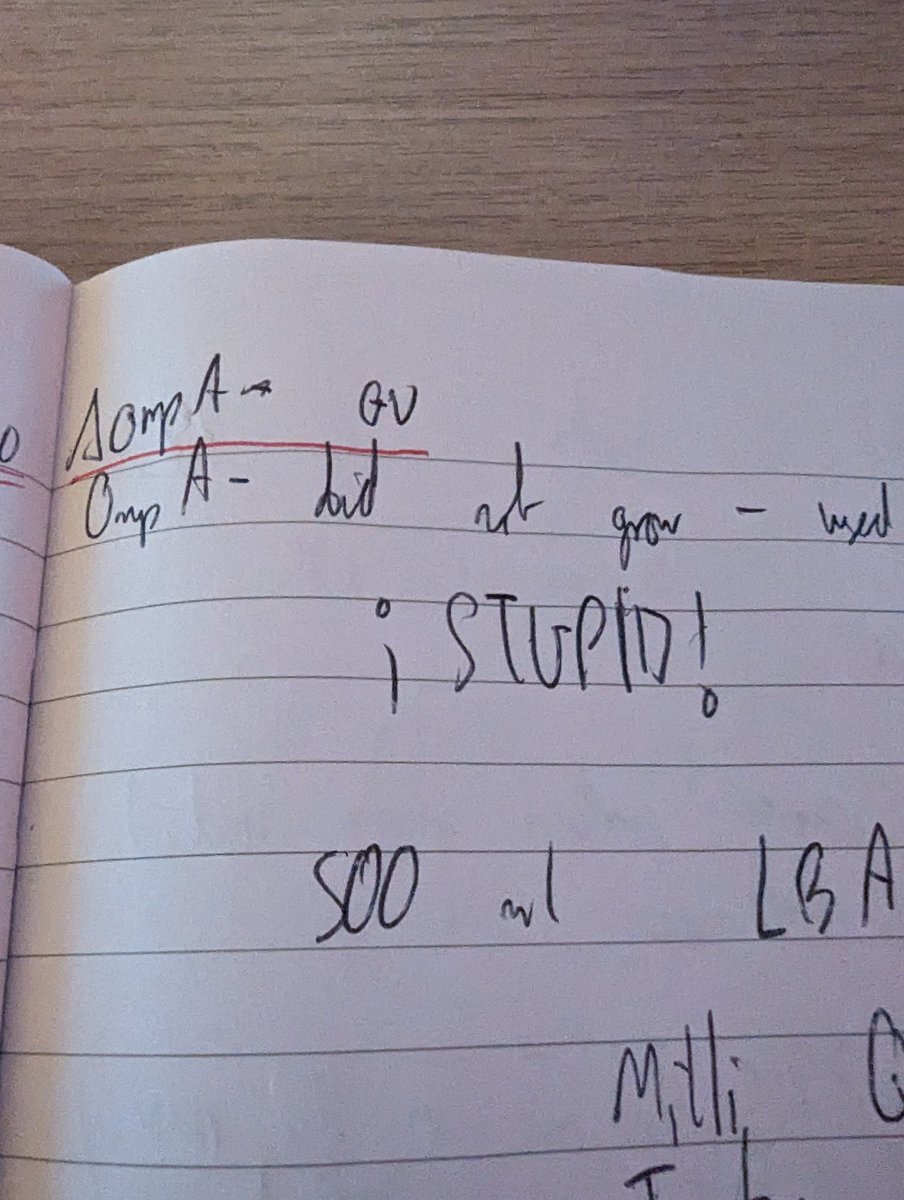 ΔOmpA→ GV
OmpA - did not grow - used
¡STUPID!
500 ml LBA
Milli Q